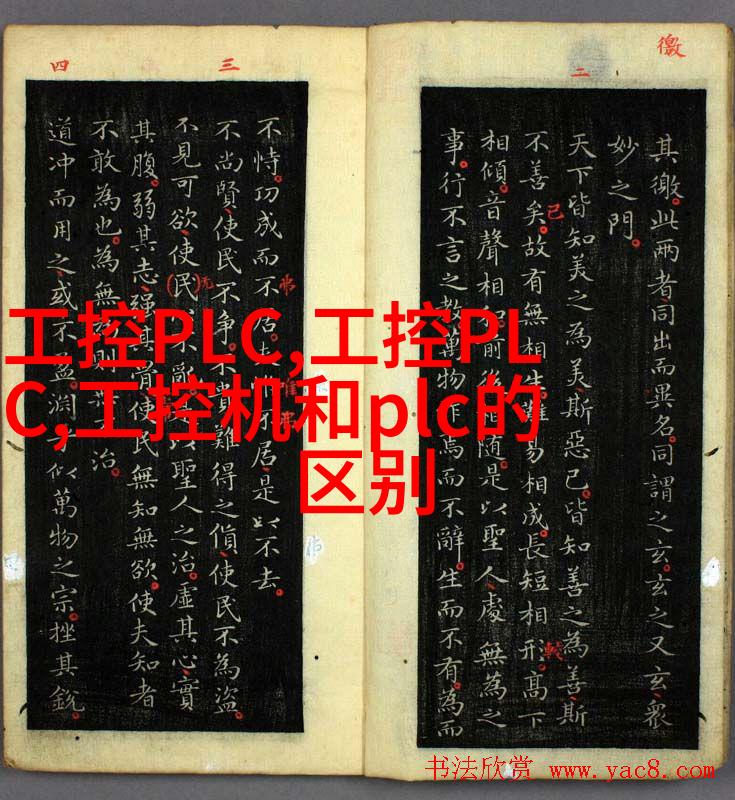 徼
二
其徼此兩者同出而異名同謂之玄玄之又玄衆
妙之門
天下皆知美之為美斯惡已皆知善之為善斯
不善矣故有無相生難易相成長短相形高下
相傾音聲相和前隨是以聖人處無為之
事行不言之教萬物作焉而不辭生而不有為而
三
四
不恃功成而不居居是以不去
不尚賢使民不争不貴難得之貨使民不為盜
不見可欲使民不亂以聖人之治虛其心實
其腹弱其志强其骨使民無知無欲使夫知者
不敢為也為無則治
道冲而用之或不盈淵乎似萬物之宗挫其銳
工控PLC,工控PL
C,工控机和plc的
区别
书法欣赏 www.yac8.com